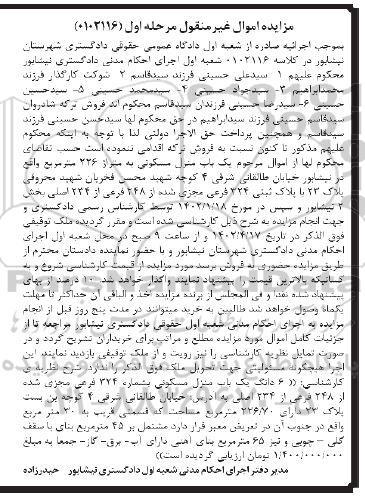 مزایده اموال غیرمنقول مرحله اول (۰۱۰۲۱۱۶)
بموجب اجرائیه صادره از شعبه اول دادگاه عمومی حقوقی دادگستری شهرستان
نیشابور در کلاسه ۰۱۰۲۱۱۶ شعبه اول اجرای احکام مدنی دادگستری نیشابور
محکوم علیهم ۱- سیدعلی حسینی فرزند سیدقاسم ۲- شوکت کارگذار فرزند
محمدابراهیم ۳- سیدجواد حسینی ۴- سیدمحمد حسینی ۵- سیدحسین
حسینی ۶- سیدرضا حسینی فرزندان سیدقاسم محکوم اند فروش ترکه شادروان
سیدقاسم حسینی فرزند سیدابراهیم در حق محکوم لها سیدحسن حسینی فرزند
سیدقاسم و همچنین پرداخت حق الاجرا دولتی لذا با توجه به اینکه محکوم
علیهم مذکور تا کنون نسبت به فروش ترکه اقدامی ننموده است حسب تقاضای
محکوم لها از اموال مرحوم یک باب منزل مسکونی به متراژ ۲۲۶ مترمربع واقع
در نیشابور خیابان طالقانی شرقی ۴ کوچه شهید محسن فخریان شهید محروقی
پلاک ۲۳ با پلاک ثبتی ۳۲۴ فرعی مجزی شده از ۲۴۸ فرعی از ۲۳۴ اصلی بخش
۲ نیشابور و سپس در مورخ ۱۴۰۲/۱/۱۸ توسط کارشناس رسمی دادگستری و
جهت انجام مزایده به شرح ذیل کارشناسی شده است و مقرر گردیده ملک توقیفی
فوق الذکر در تاریخ ۱۴۰۲/۴/۱۷ و از ساعت ۹ صبح در محل شعبه اول اجرای
احکام مدنی دادگستری شهرستان نیشابور و با حضور نماینده دادستان محترم از
طریق مزایده حضوری به فروش برسد مورد مزایده از قیمت کارشناسی شروع و به
کسانیکه بالاترین قیمت را پیشنهاد نمایند واگذار خواهد شد. ۱۰ درصد از بهای
پیشنهاد شده نقدا و فی المجلس از برنده مزایده اخذ و الباقی آن حداکثر تا مهلت
یکماه وصول خواهد شد طالبین به خرید میتوانند در مدت پنج روز قبل از انجام
مزایده به اجرای احکام مدنی شعبه اول حقوقی دادگستری نیشابور مراجعه تا از
جزئیات کامل اموال مورد مزایده مطلع و مراتب برای خریداران تشریح گردد و در
صورت تمایل نظریه کارشناسی را نیز رویت و از ملک توقیفی بازدید نمایند. این
اجرا هیچگونه مسئولیتی جهت تحویل ملک فوق الذکر را ندارد شرح نظریه ی
کارشناسی: (( ۶ دانگ یک باب منزل مسکونی بشماره ۳۲۴ فرعی مجزی شده
از ۲۴۸ فرعی از ۲۳۴ اصلی به آدرس خیابان طالقانی شرقی ۴ کوچه بن بست
پلاک ۲۳ دارای ۲۲۶/۷۰ مترمربع مساحت که قسمتی قریب به ۳۰ متر مربع
واقع در جنوب آن در تعریض معبر قرار دارد مشتمل بر ۴۵ مترمربع بنای با سقف
گلی – چوبی و نیز ۶۵ مترمربع بنای آهنی دارای آب- برق- گاز- جمعا به مبلغ
۱/۴۰۰/۰۰۰/۰۰۰ تومان ارزیابی گردیده است))
مدیر دفتر اجرای احکام مدنی شعبه اول دادگستری نیشابور – حیدرزاده